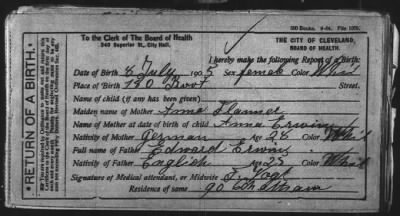 500 Books. 9-04. File 1029.
To the Clerk of The Board of Health
THE CITY OF CLEVELAND,
340 Superior St., City Hall.
BOARD OF HEALTH.
RETURN OF A BIRTH.
I hereby make the following Report of a Birth:
Date of Birth 8 July 1905 Sex female Color Whit
Place of Birth 130 Street.
Name of child (if any has been given)
Maiden name of Mother Anna
Name of Mother at date of birth of child Anna Erwin
Nativity of Mother German Age 28 Color Whit
Full name of Father Edward Erwin
Nativity of Father English Age 25 Color Whit
Signature of Medical attendant, or Midwife F. Vogt
Residence of same 90 Chatham